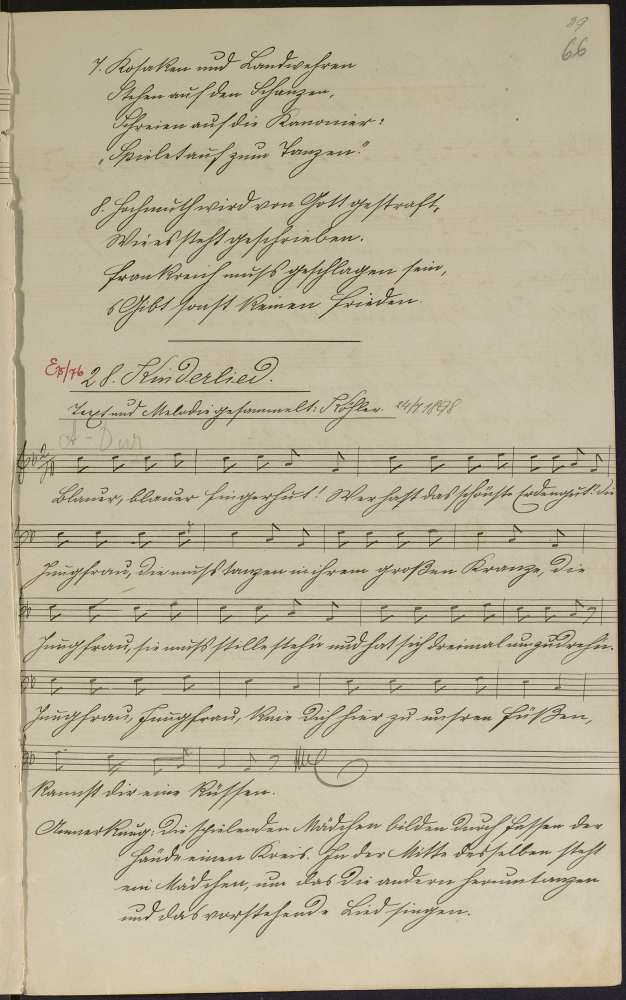 29
66
7. Kosaken und Landwehren
Stehen auf den Schanzen,
Schreien auf die Kanonier:
„Spielet auf zum Tanzen."
8. Hochmuth wird von Gott gestraft,
Wie es steht geschrieben.
Frankreich muss geschlagen sein,
s Gibt sonst keinen Frieden.
28. Kinderlied.
Text und Melodie gesammelt: Köhler. 24/7 1898
A-Dur
Blauer, blauer Fingerhut! Wer hast das schönste Erdengut? Die
Jungfrau, die muss tanzen in ihrem großen Kranze, die
Jungfrau, sie muss stille stehn und hat sich dreimal umzudrehn.
Jungfrau, Jungfrau, knie dich hier zu unsren Füßen,
kannst dir eine küssen.
Anmerkung: Die spielenden Mädchen bilden durch Fassen der
Hände einen Kreis. In der Mitte desselben steht
ein Mädchen, um das die andern herumtanzen
und das vorstehende Lied singen.